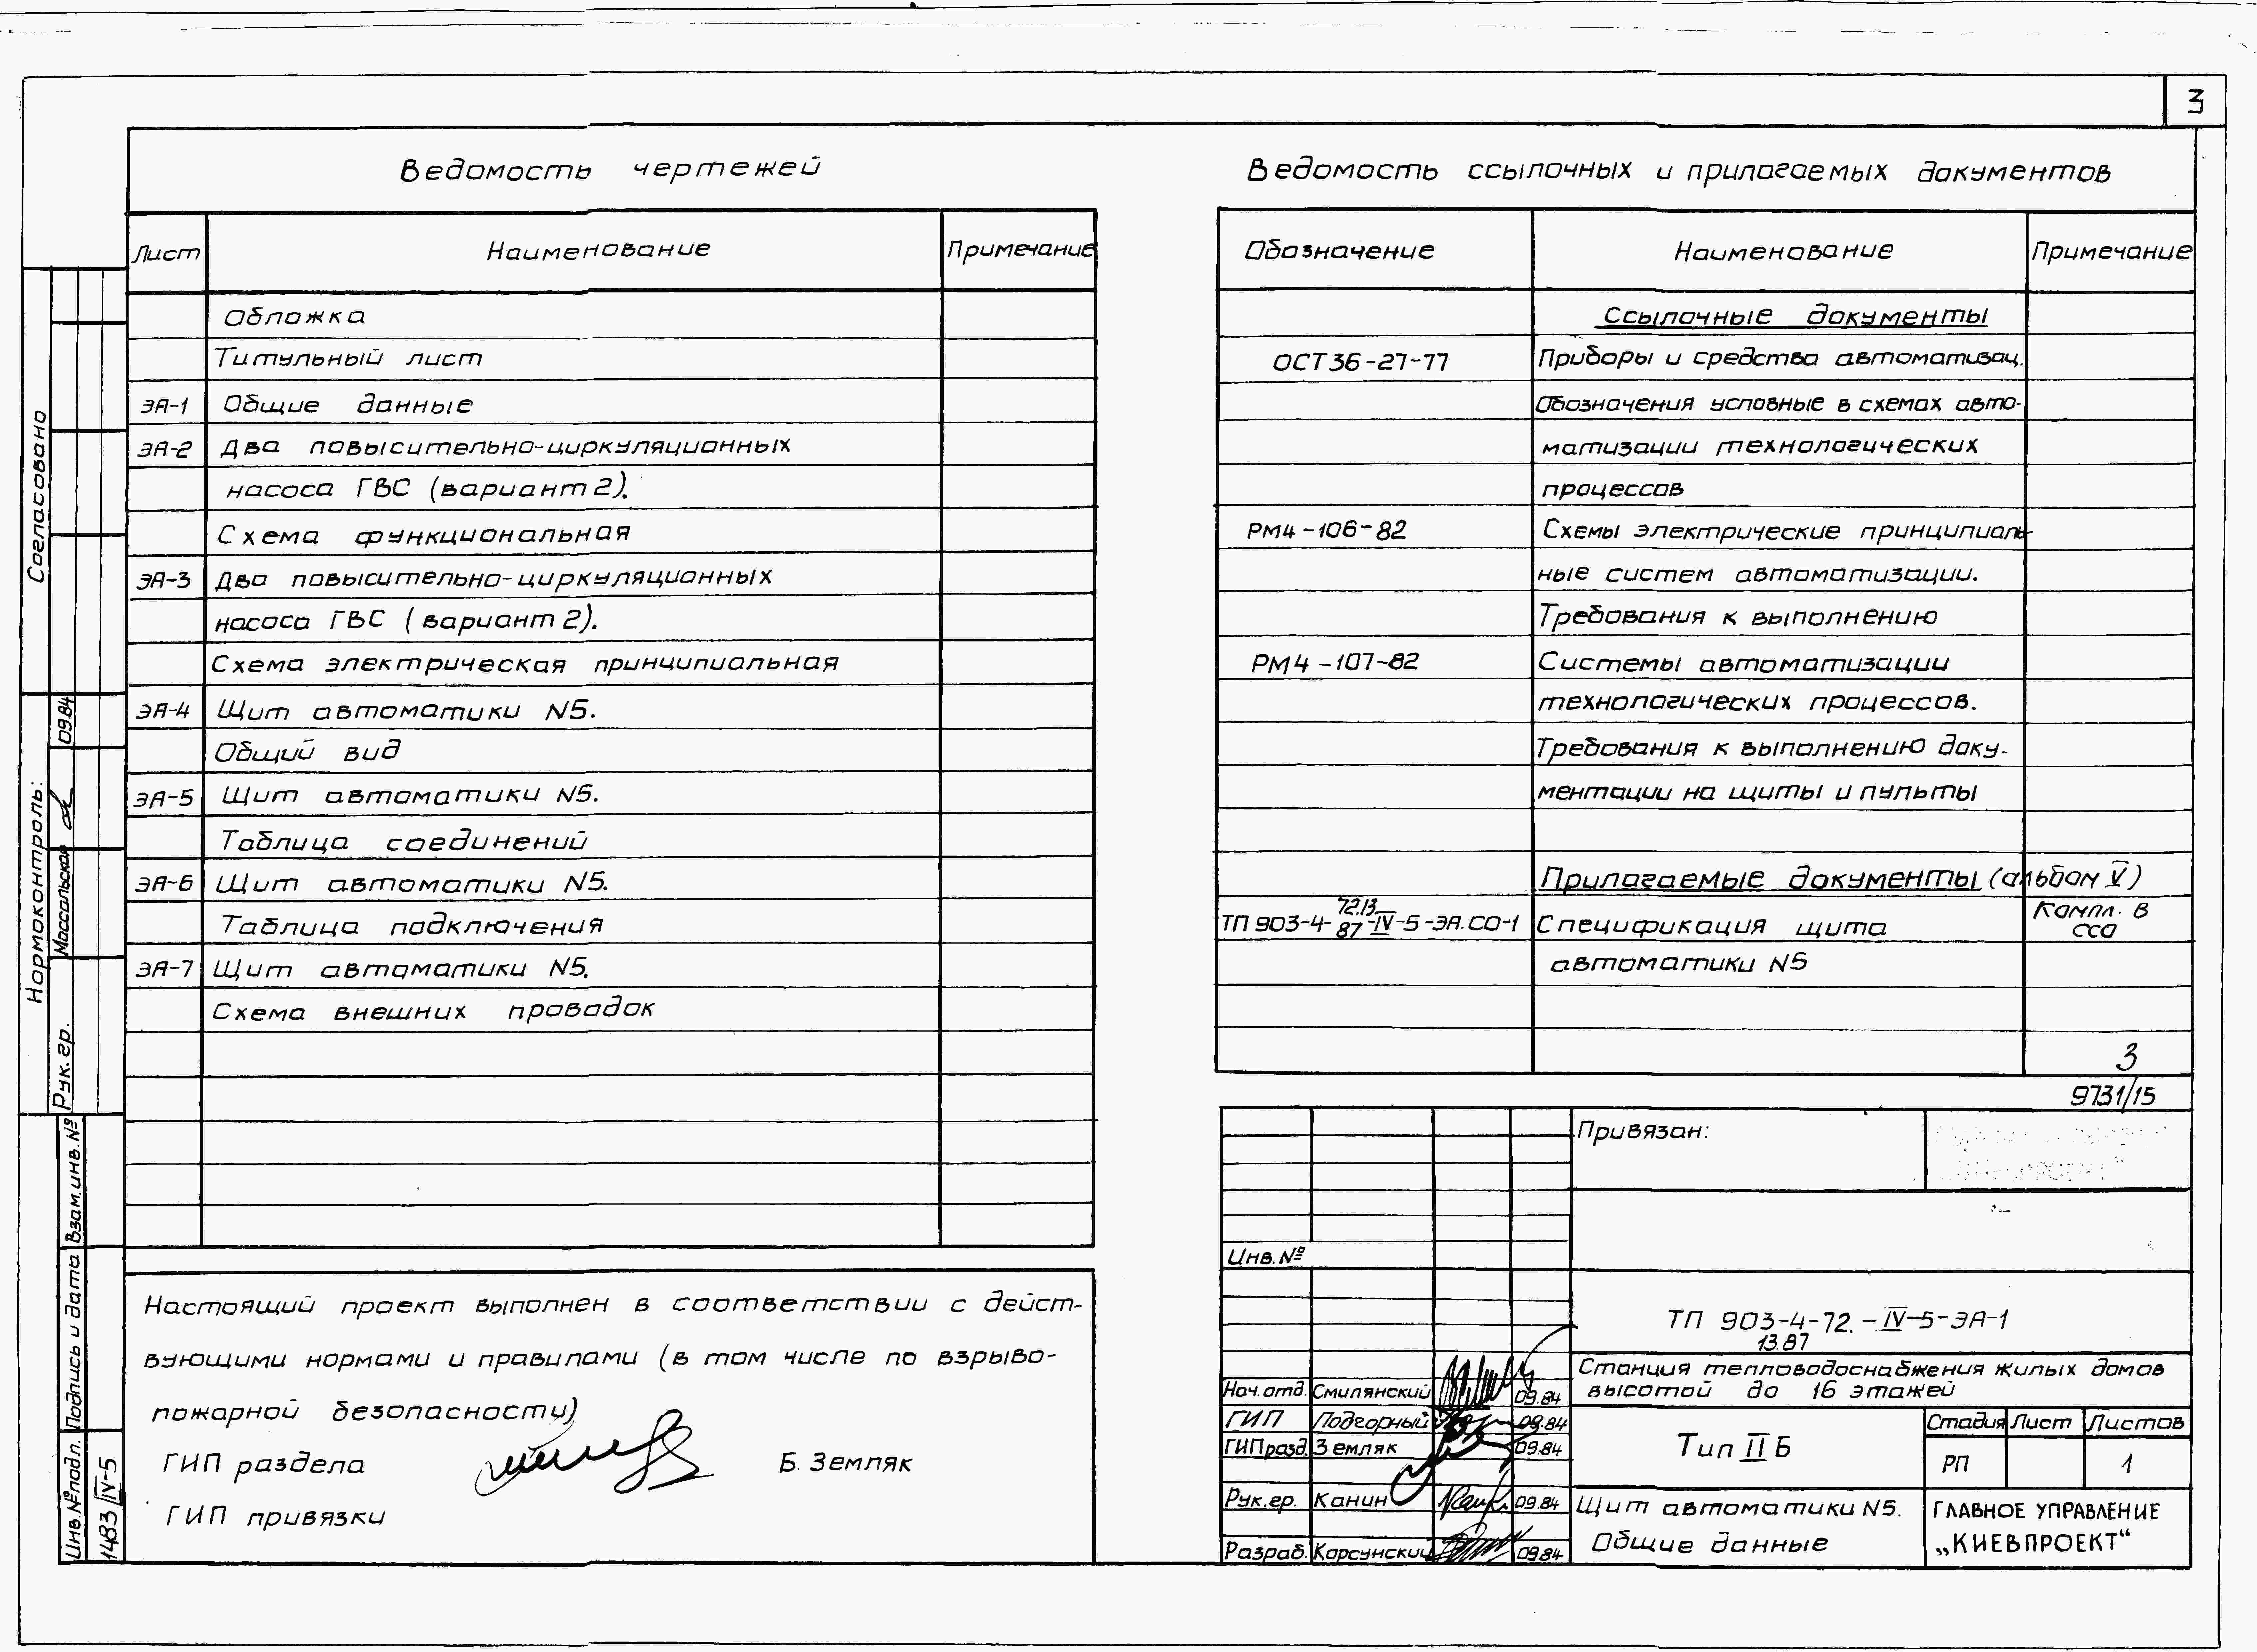 3
Ведомость чертежей
Лист Наименование Примечание
Обложка
Титульный лист
ЭА-1 Общие данные
ЭА-2 Два повысительно-циркуляционных
насоса ГВС (вариант 2).
Схема функциональная
ЭА-3 Два повысительно-циркуляционных
насоса ГВС (вариант 2).
Схема электрическая принципиальная
ЭА-4 Щит автоматики N5.
Общий вид
ЭА-5 Щит автоматики N5.
Таблица соединений
ЭА-6 Щит автоматики N5.
Таблица подключения
ЭА-7 Щит автоматики N5.
Схема внешних проводок
Ведомость ссылочных и прилагаемых документов
Обозначение Наименование Примечание
Ссылочные документы
ОСТ 36-27-77 Приборы и средства автоматизац.
Обозначения условные в схемах авто-
матизации технологических
процессов
РМ4-106-82 Схемы электрические принципиаль-
ные систем автоматизации.
Требования к выполнению
РМ4-107-82 Системы автоматизации
технологических процессов.
Требования к выполнению доку-
ментации на щиты и пульты
Прилагаемые документы (альбом V)
ТП 903-4-72.13.87-IV-5-ЭА.СО-1 Спецификация щита Компл. в ССО
автоматики N5
3
9731/15
Настоящий проект выполнен в соответствии с дейст-
вующими нормами и правилами (в том числе по взрыво-
пожарной безопасности)
ГИП раздела Б. Земляк
ГИП привязки
Привязан:
Инв. №
ТП 903-4-72.13.87-IV-5-ЭА-1
Станция тепловодоснабжения жилых домов
высотой до 16 этажей
Нач. отд. Смилянский 09.84
ГИП Подгорный 09.84
ГИП разд. Земляк 09.84
Рук. гр. Канин 09.84
Разраб. Корсунский 09.84
Тип II Б
Стадия Лист Листов
РП 1
Щит автоматики N5.
Общие данные
ГЛАВНОЕ УПРАВЛЕНИЕ
„КИЕВПРОЕКТ“
Согласовано
Нормоконтроль:
Рук. гр. Массальская 09.84
Взам. инв. №
Подпись и дата
Инв. № подл.
1483 IV-5